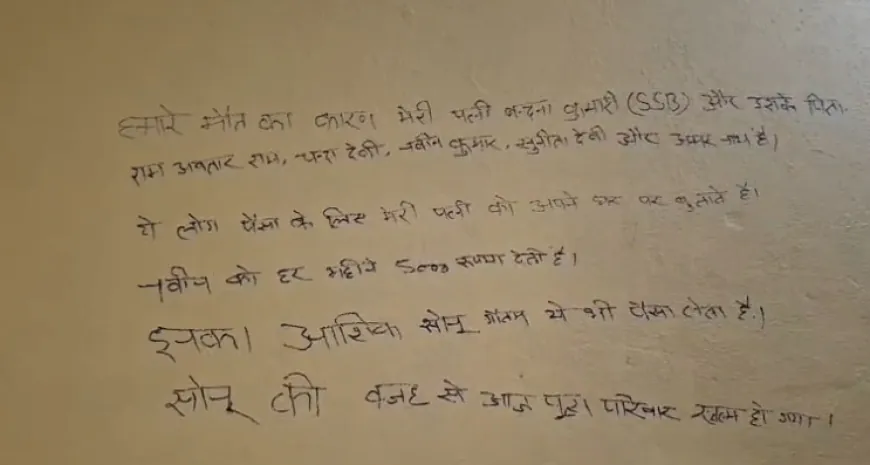 हमारे मौत का कारण मेरी पत्नी बन्दना कुमारी (SSB) और उसके पिता
राम अवतार राम, चन्दा देवी, नवीन कुमार, सुनीता देवी और अमर नाथ है।
ये लोग पैसा के लिए मेरी पत्नी को अपने घर पर बुलाते है।
नवीन को हर महीने 5000 रूपया देती है।
इनका आशिक सोनू गौतम ये भी पैसा लेता है।
सोनू की वजह से आज पुरा परिवार खत्म हो गया।